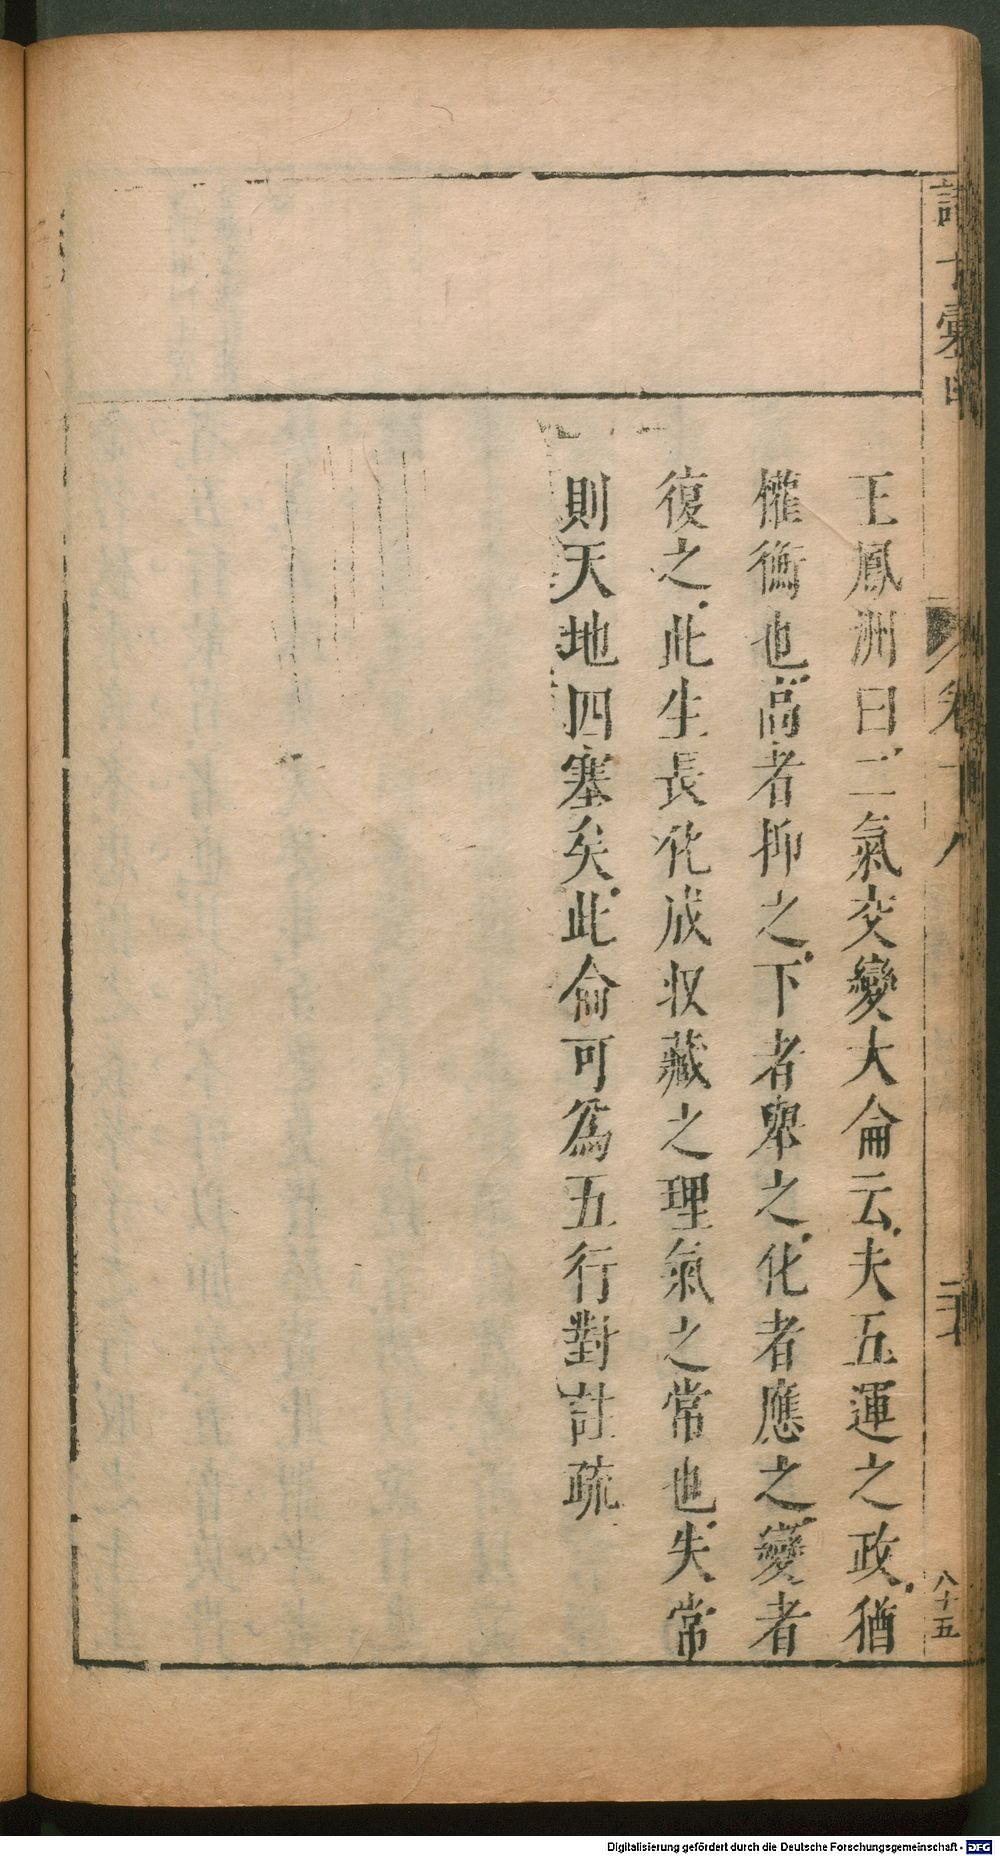 王鳳洲曰二氣交變大侖云夫五運之政猶
權衡也高者抑之下者舉之化者應之變者
復之此生長化成収藏之理氣之常也失常
則天地四塞矣此侖可為五行對註疏
卷十八
八十五
Digitalisierung gefördert durch die Deutsche Forschungsgemeinschaft - DFG